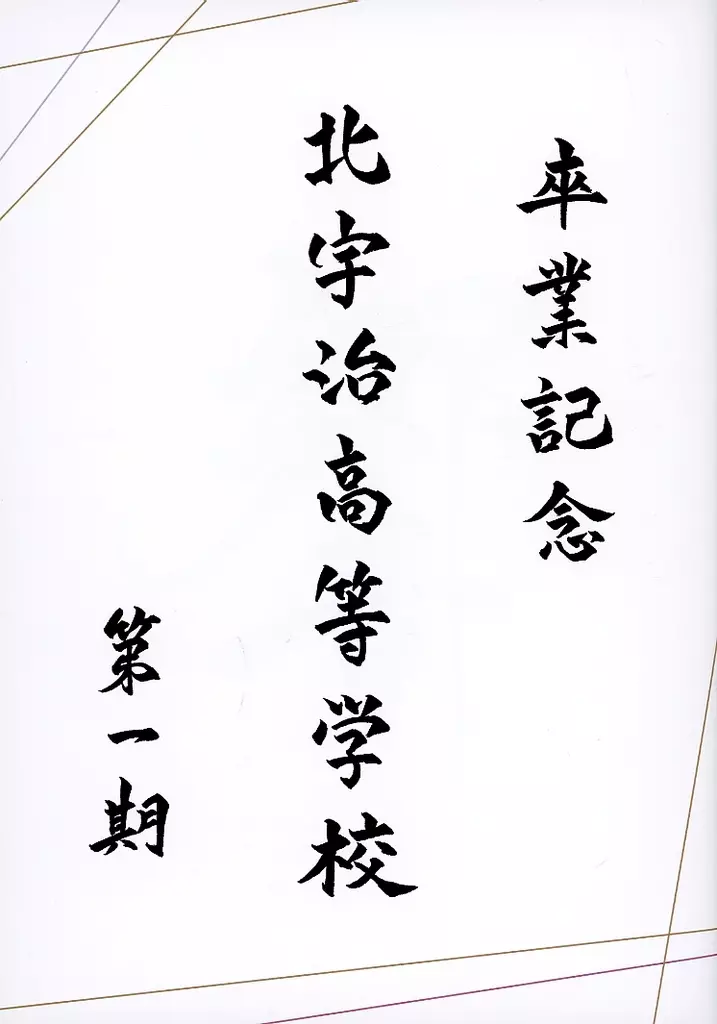 卒業記念
北宇治高等学校
第一期